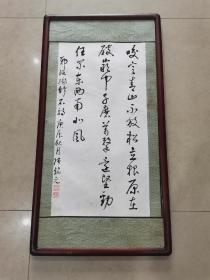 咬定青山不放松立根原在
破岩中千磨万击还坚劲
任尔东西南北风
郑板桥竹石诗庚辰秋月